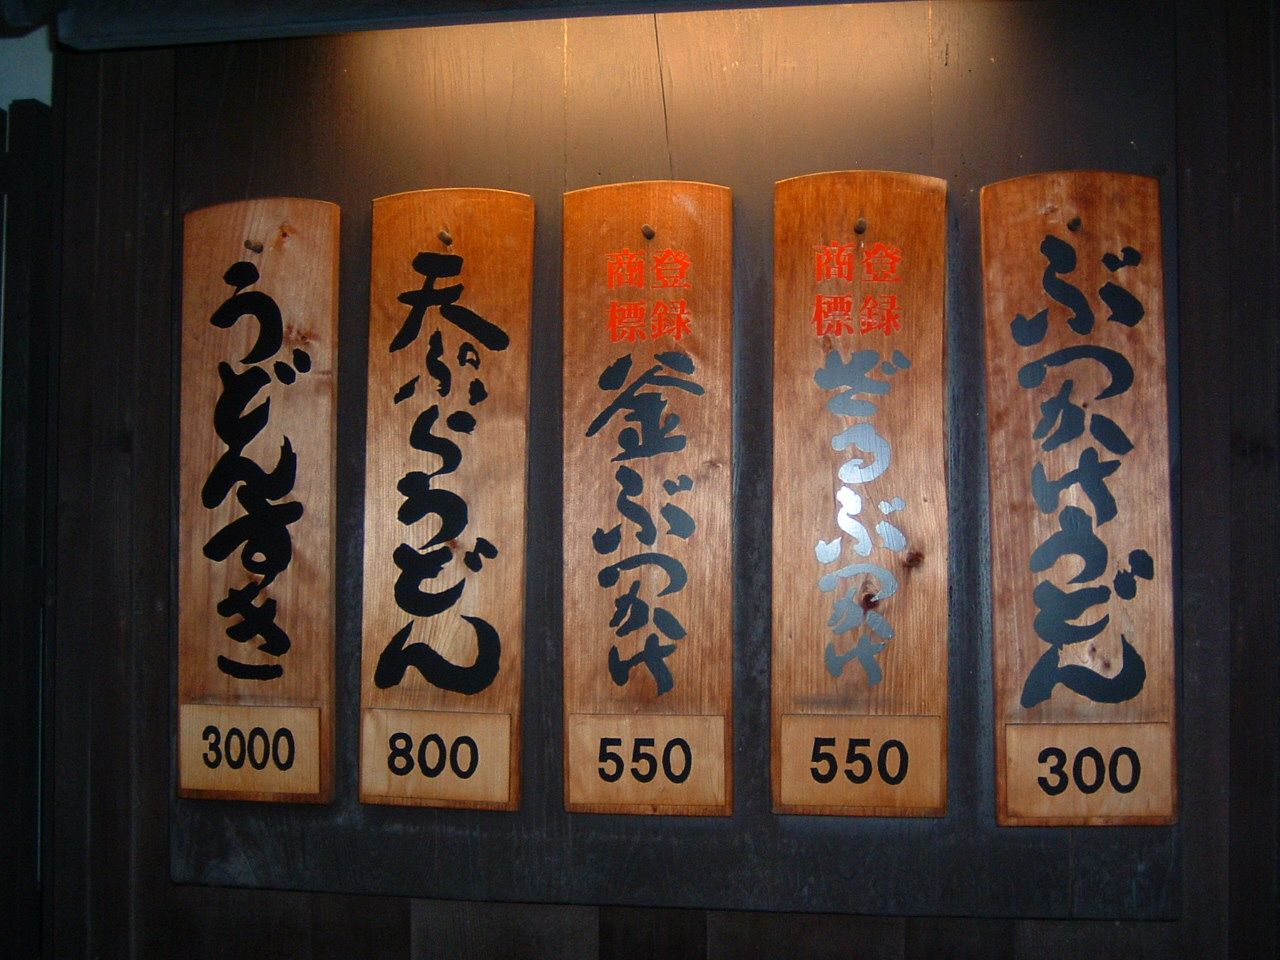 ぶっかけうどん
300
登録
商標
ざるぶっかけ
550
登録
商標
釜ぶっかけ
550
天ぷらうどん
800
うどんすき
3000